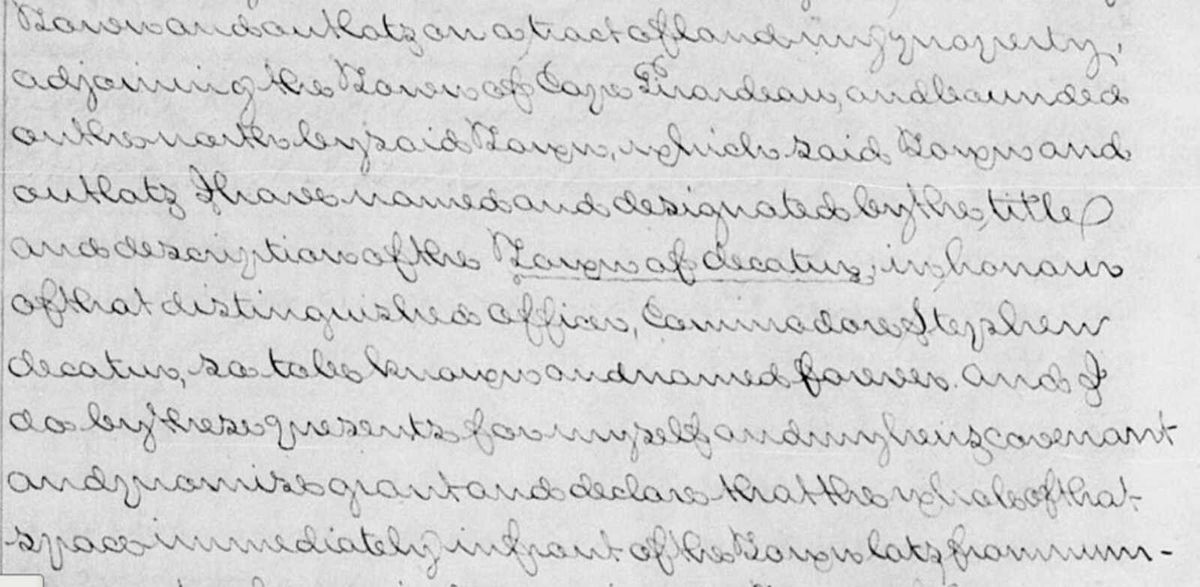 Town and outlots on a tract of land in my property,
adjoining the Town of Cape Girardeau, and bounded
on the north by said Town, which said Town and
outlots I have named and designated by the title
and description of the Town of decatur, in honour
of that distinguished officer, Commodore Stephen
decatur, so to be known and named forever. And I
do by these presents for myself and my heirs covenant
and promise grant and declare that the whole of that
space immediately in front of the Town lots from num-